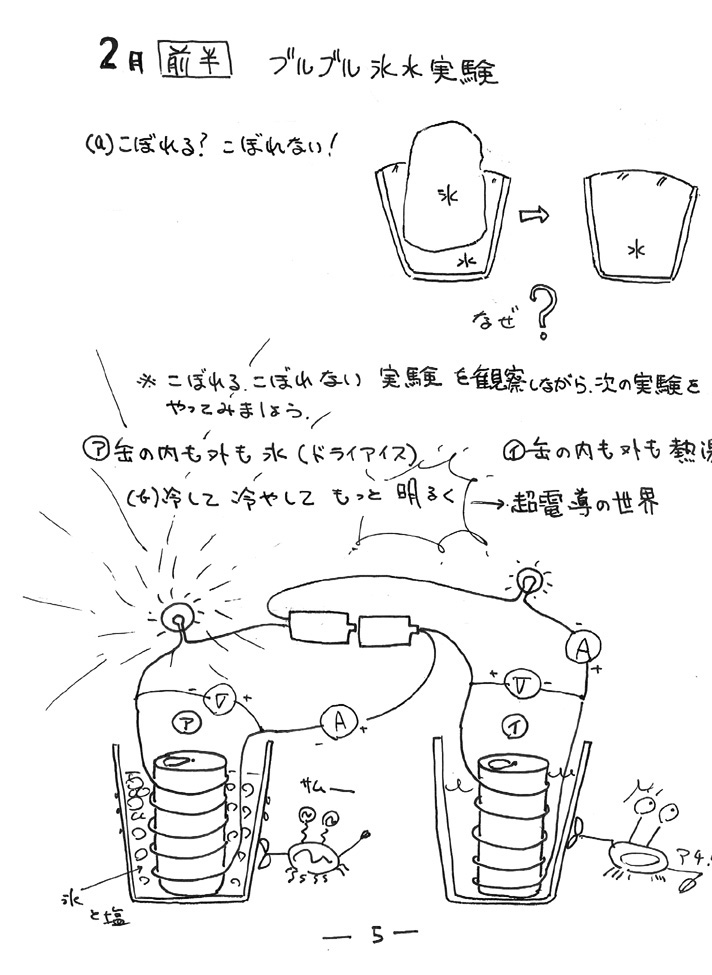 2月 前半 ブルブル氷水実験
(a)こぼれる？こぼれない！
氷
水
水
なぜ？
※ こぼれる、こぼれない 実験を観察しながら、次の実験を
やってみましょう。
㋐缶の内も外も氷（ドライアイス）
㋑缶の内も外も熱湯
(b)冷して冷やしてもっと明るく→超電導の世界
- V +
- A +
㋐
+ V -
-
A
+
㋑
サムー
氷
と塩
アチ
— 5 —